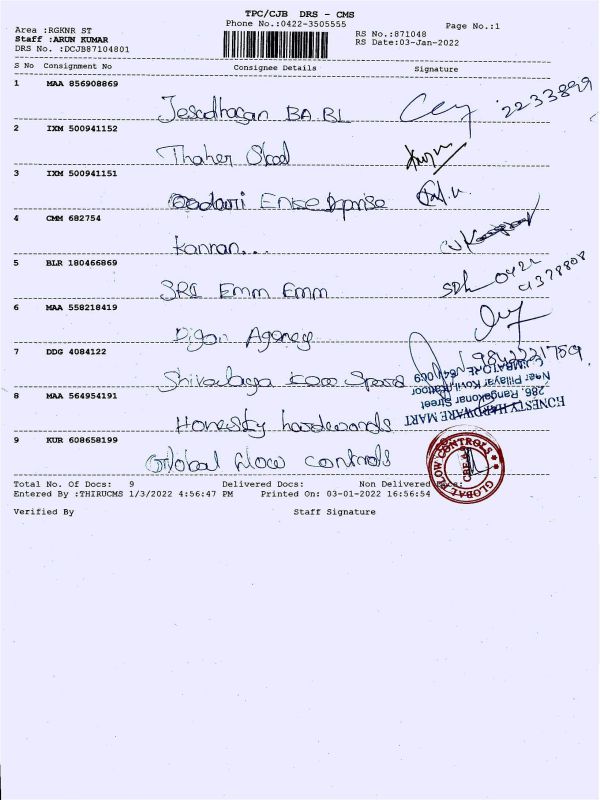 TPC/CJB DRS - CMS
Phone No.:0422-3505555
Page No.:1
Area :RGKNR ST
RS No.:871048
Staff :ARUN KUMAR
RS Date:03-Jan-2022
DRS No. :DCJB87104801
S No Consignment No Consignee Details Signature
1 MAA 856908869
BA BL 2233899
2 IXM 500941152
Thaher
3 IXM 500941151
4 CMM 682754
Kannan...
5 BLR 180466869
SRI Emm Emm 0422
4378808
6 MAA 558218419
Agency
7 DDG 4084122
9842221759
8 MAA 564954191
Honesty
HONESTY HARDWARE MART
286, Rangakonar Street
Near Pillayar Kovil, Kattoor
COIMBATORE-641 009
9 KUR 608658199
Global Flow controls
GLOBAL FLOW CONTROLS
CBE-9
Total No. Of Docs: 9 Delivered Docs: Non Delivered Docs:
Entered By :THIRUCMS 1/3/2022 4:56:47 PM Printed On: 03-01-2022 16:56:54
Verified By Staff Signature